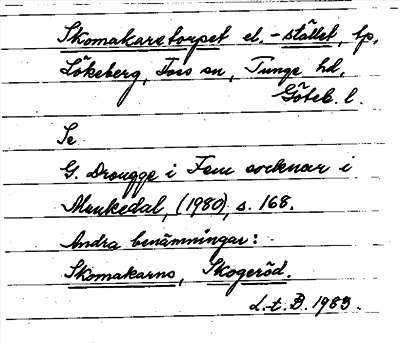 Skomakaretorpet el. -stället, tp,
Lökeberg, Foss sn, Tunge hd,
Göteb. l.
Se
G. Drougge i Fem socknar i
Munkedal, (1980), s. 168.
Andra benämningar:
Skomakarns, Skogeröd.
L.t.B. 1983.